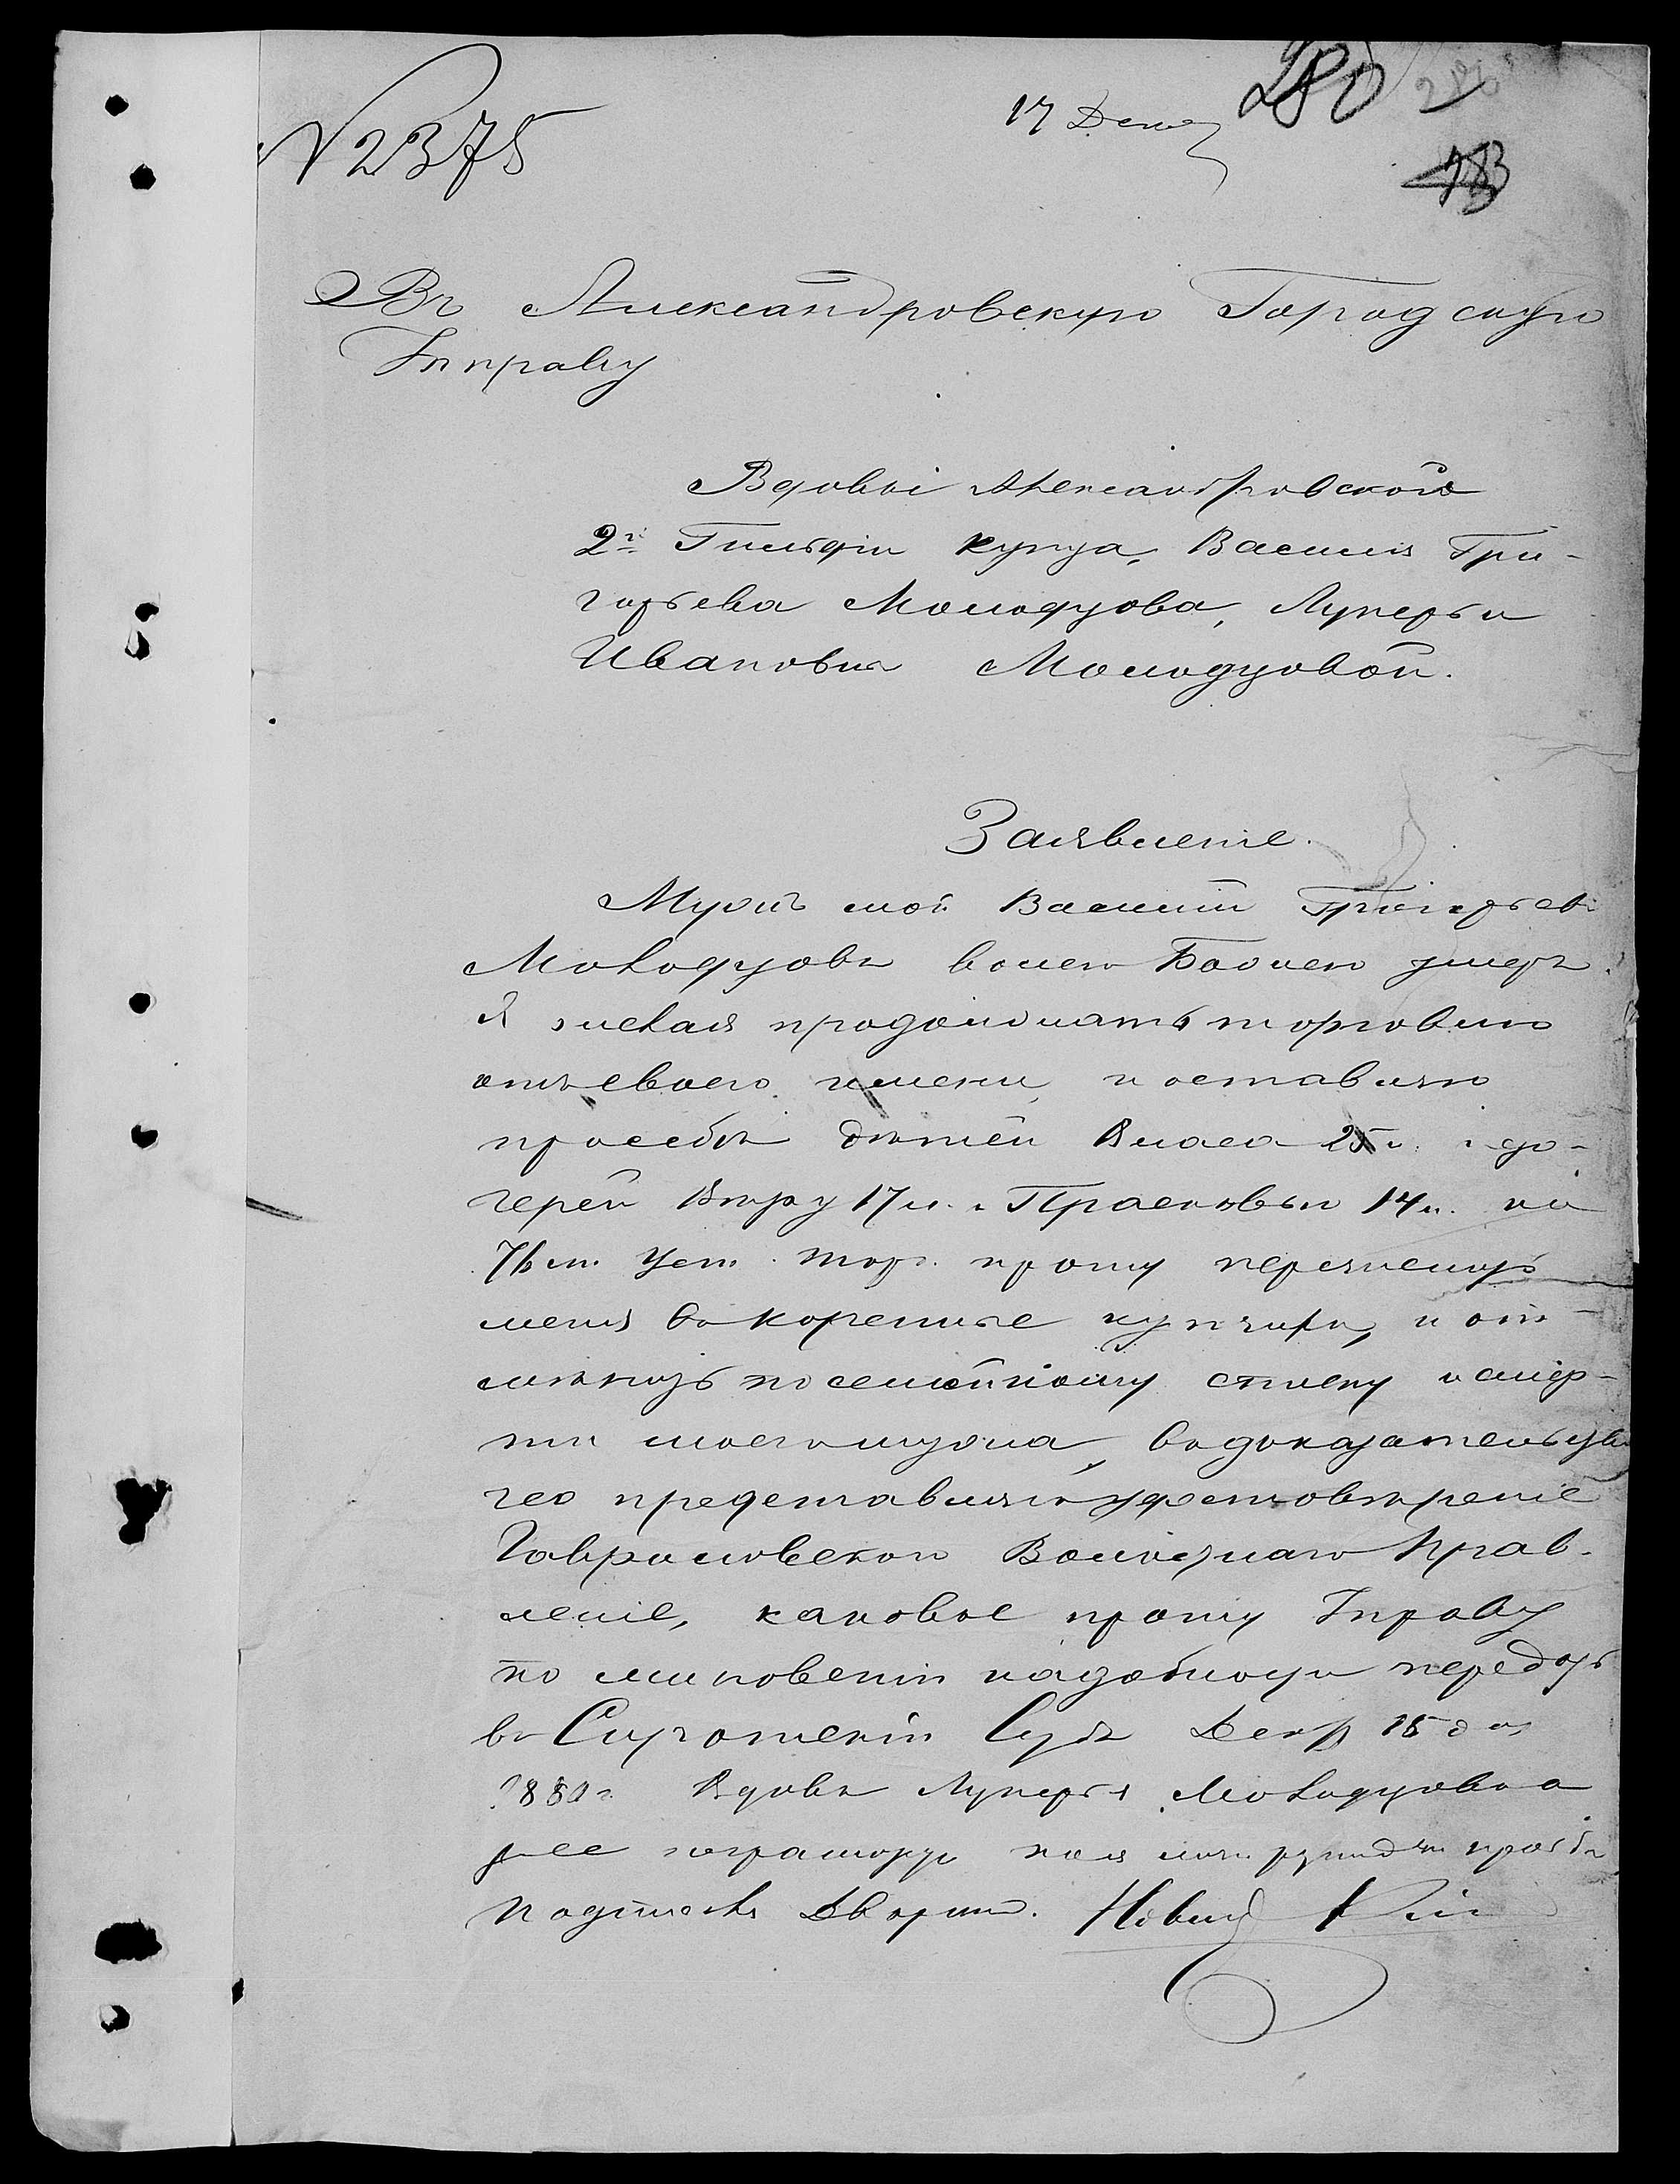 № 2375
17 Дек
280
283
Въ Александровскую Городскую
Управу
Вдовы Александровскаго
2й Гильдіи купца, Василія Гри-
горьева Молодцова, Лукерьи
Ивановны Молодцовой.
Заявленіе.
Мужъ мой Василій Григорьевъ
Молодцовъ волею Божіею умеръ.
Я желая продолжать торговлю
отъ своего имени, и оставляю
при себѣ дѣтей Власа 25 л. и до-
черей Вѣру 17 л. и Прасковью 14 л. на
71 ст. Уст. торг. прошу перечислить
меня въ коренные купчихи, и от-
мѣтить по семейному списку о смер-
ти моего мужа, въ доказательство
чего представляю удостовѣреніе
Гавриловскаго Волостнаго Прав-
ленія, каковое прошу Управу
по миновеніи надобности передать
въ Сиротскій Судъ Декр 15 дня
1880 г. Вдова Лукерья Молодцова а
за нее неграмотную по ея личн. рукод. просьбѣ
подписалъ Дворян.